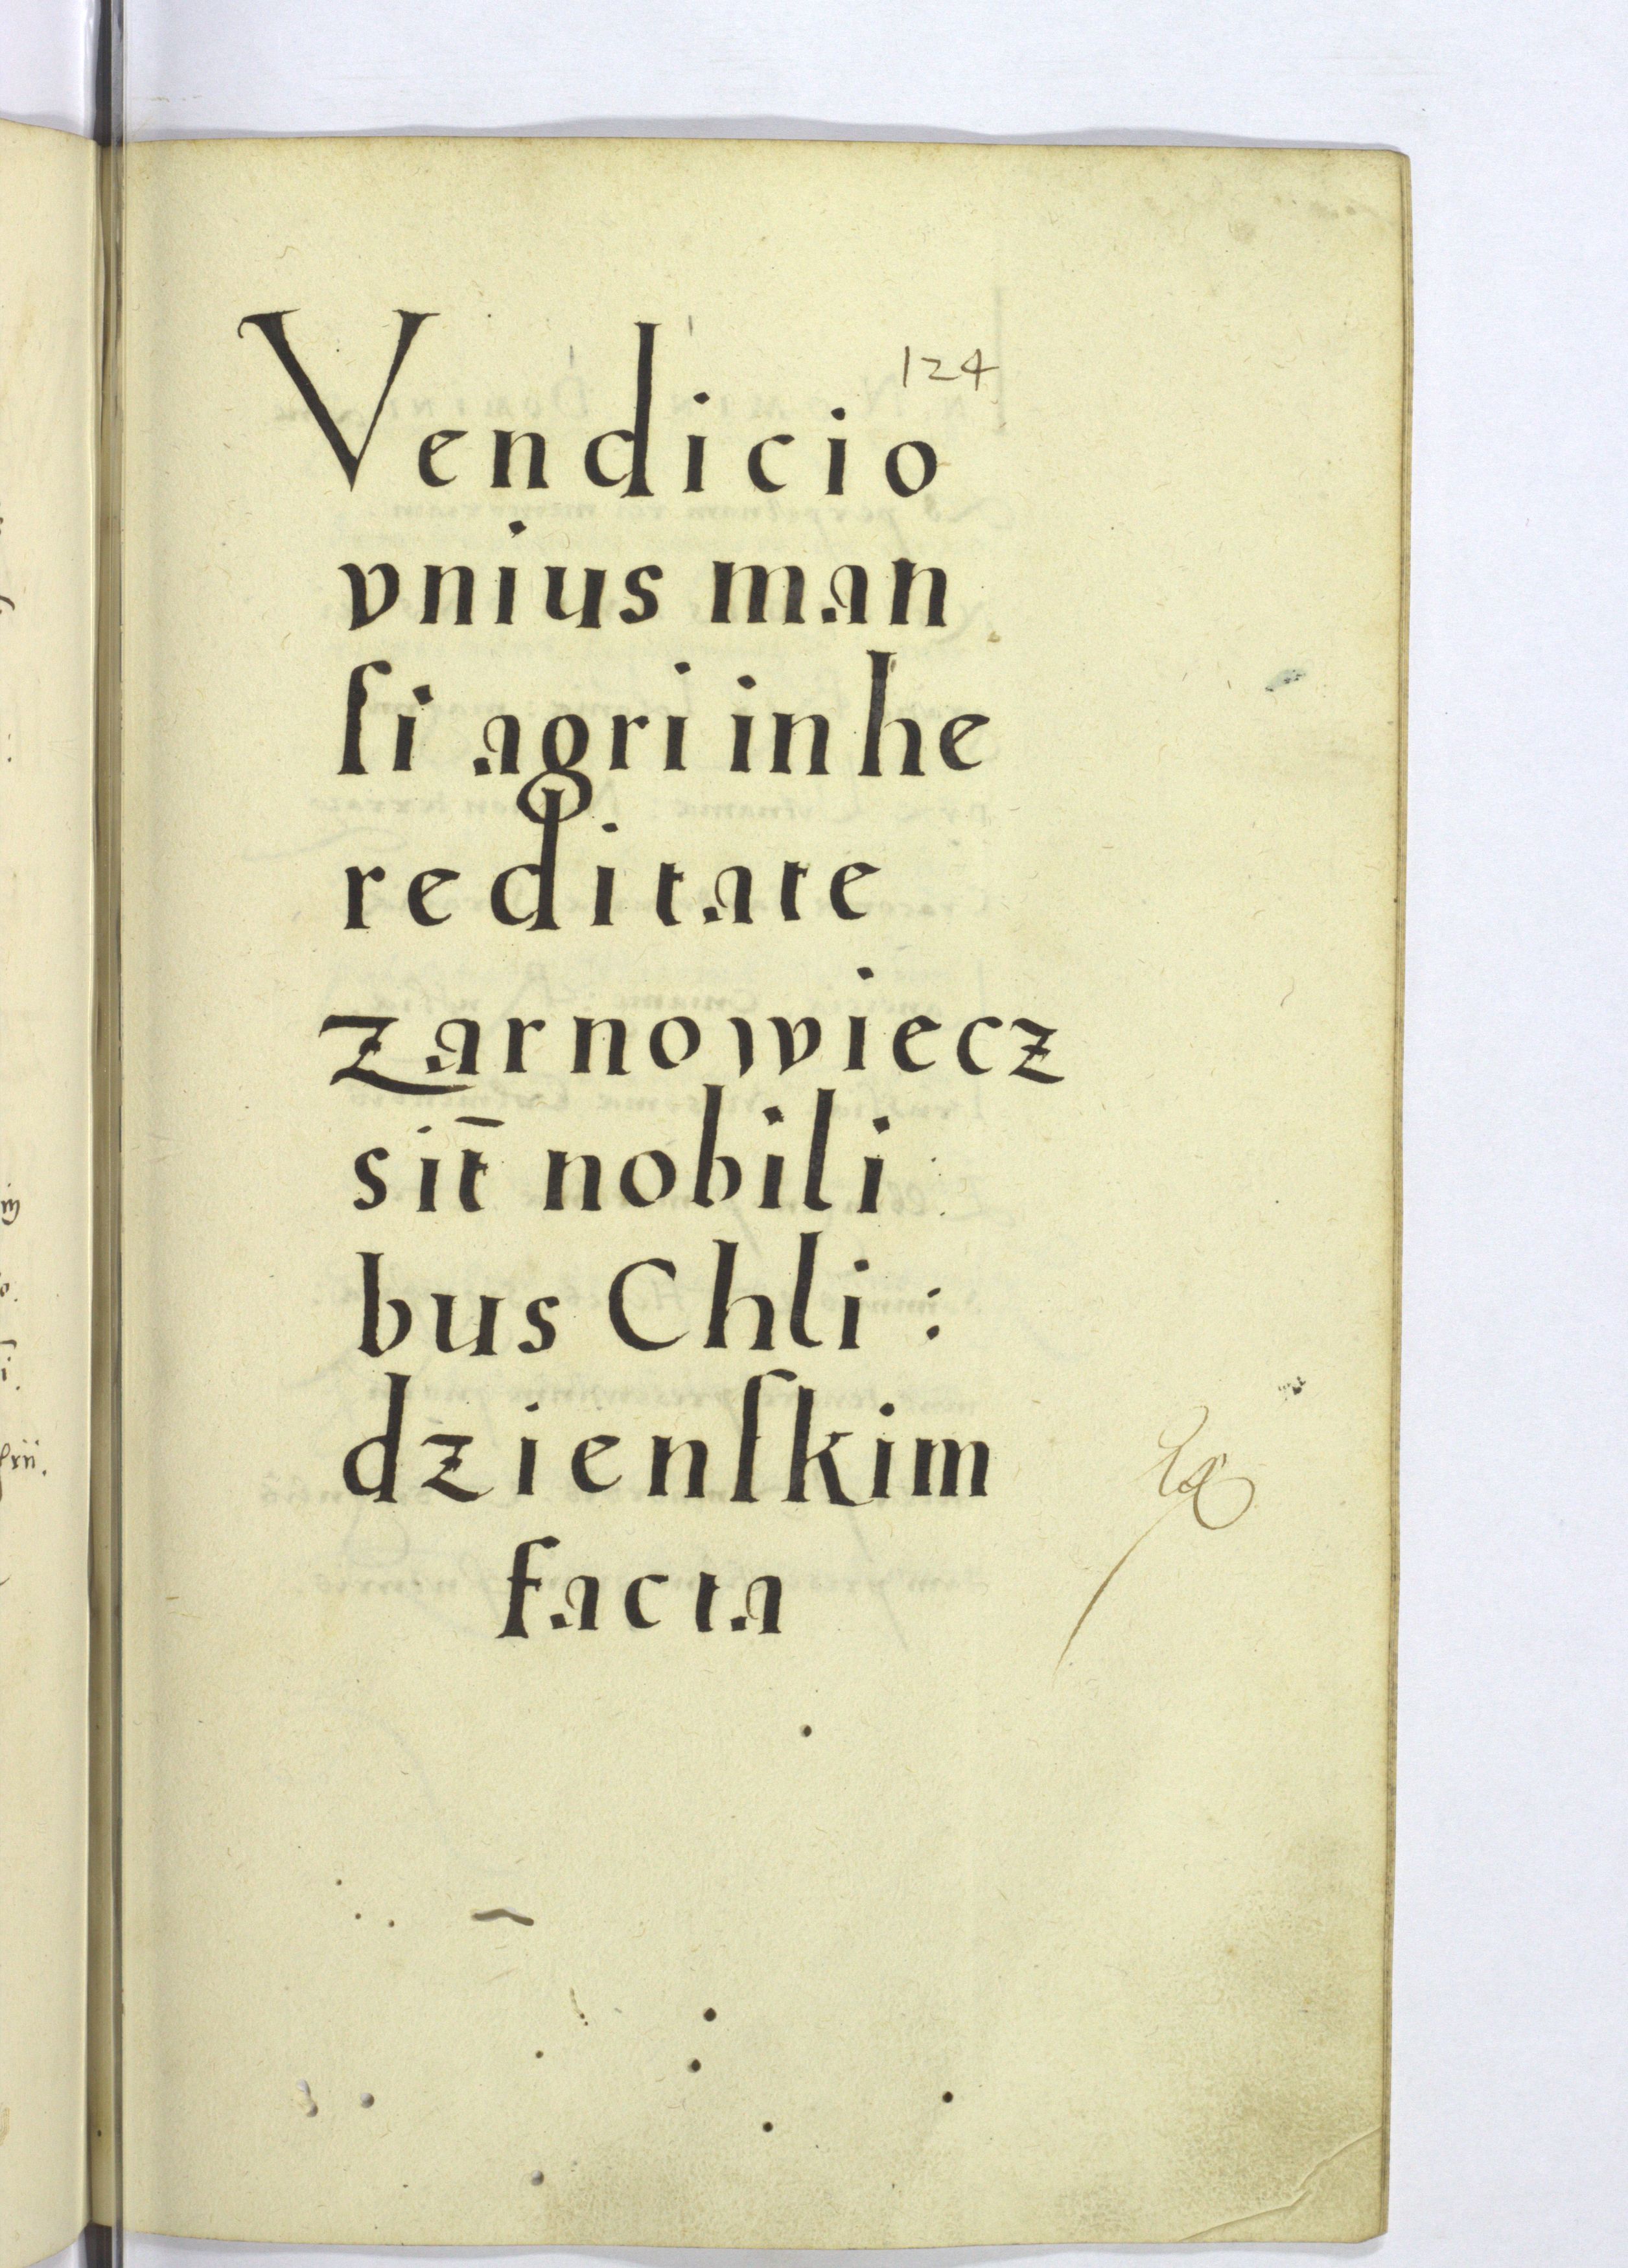 124
Vendicio
vnius man
ſi agri in he
reditate
zarnowiecz
sit̄ nobili
bus Chli:
dzienſkim
facta